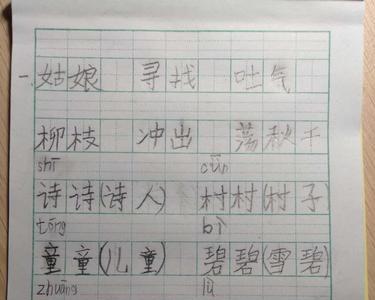 一 姑娘 寻找 吐气
柳枝 冲出 荡秋千
shī cūn
诗诗(诗人) 村村(村子)
tóng bì
童童(儿童) 碧碧(雪碧)
zhuāng lǜ